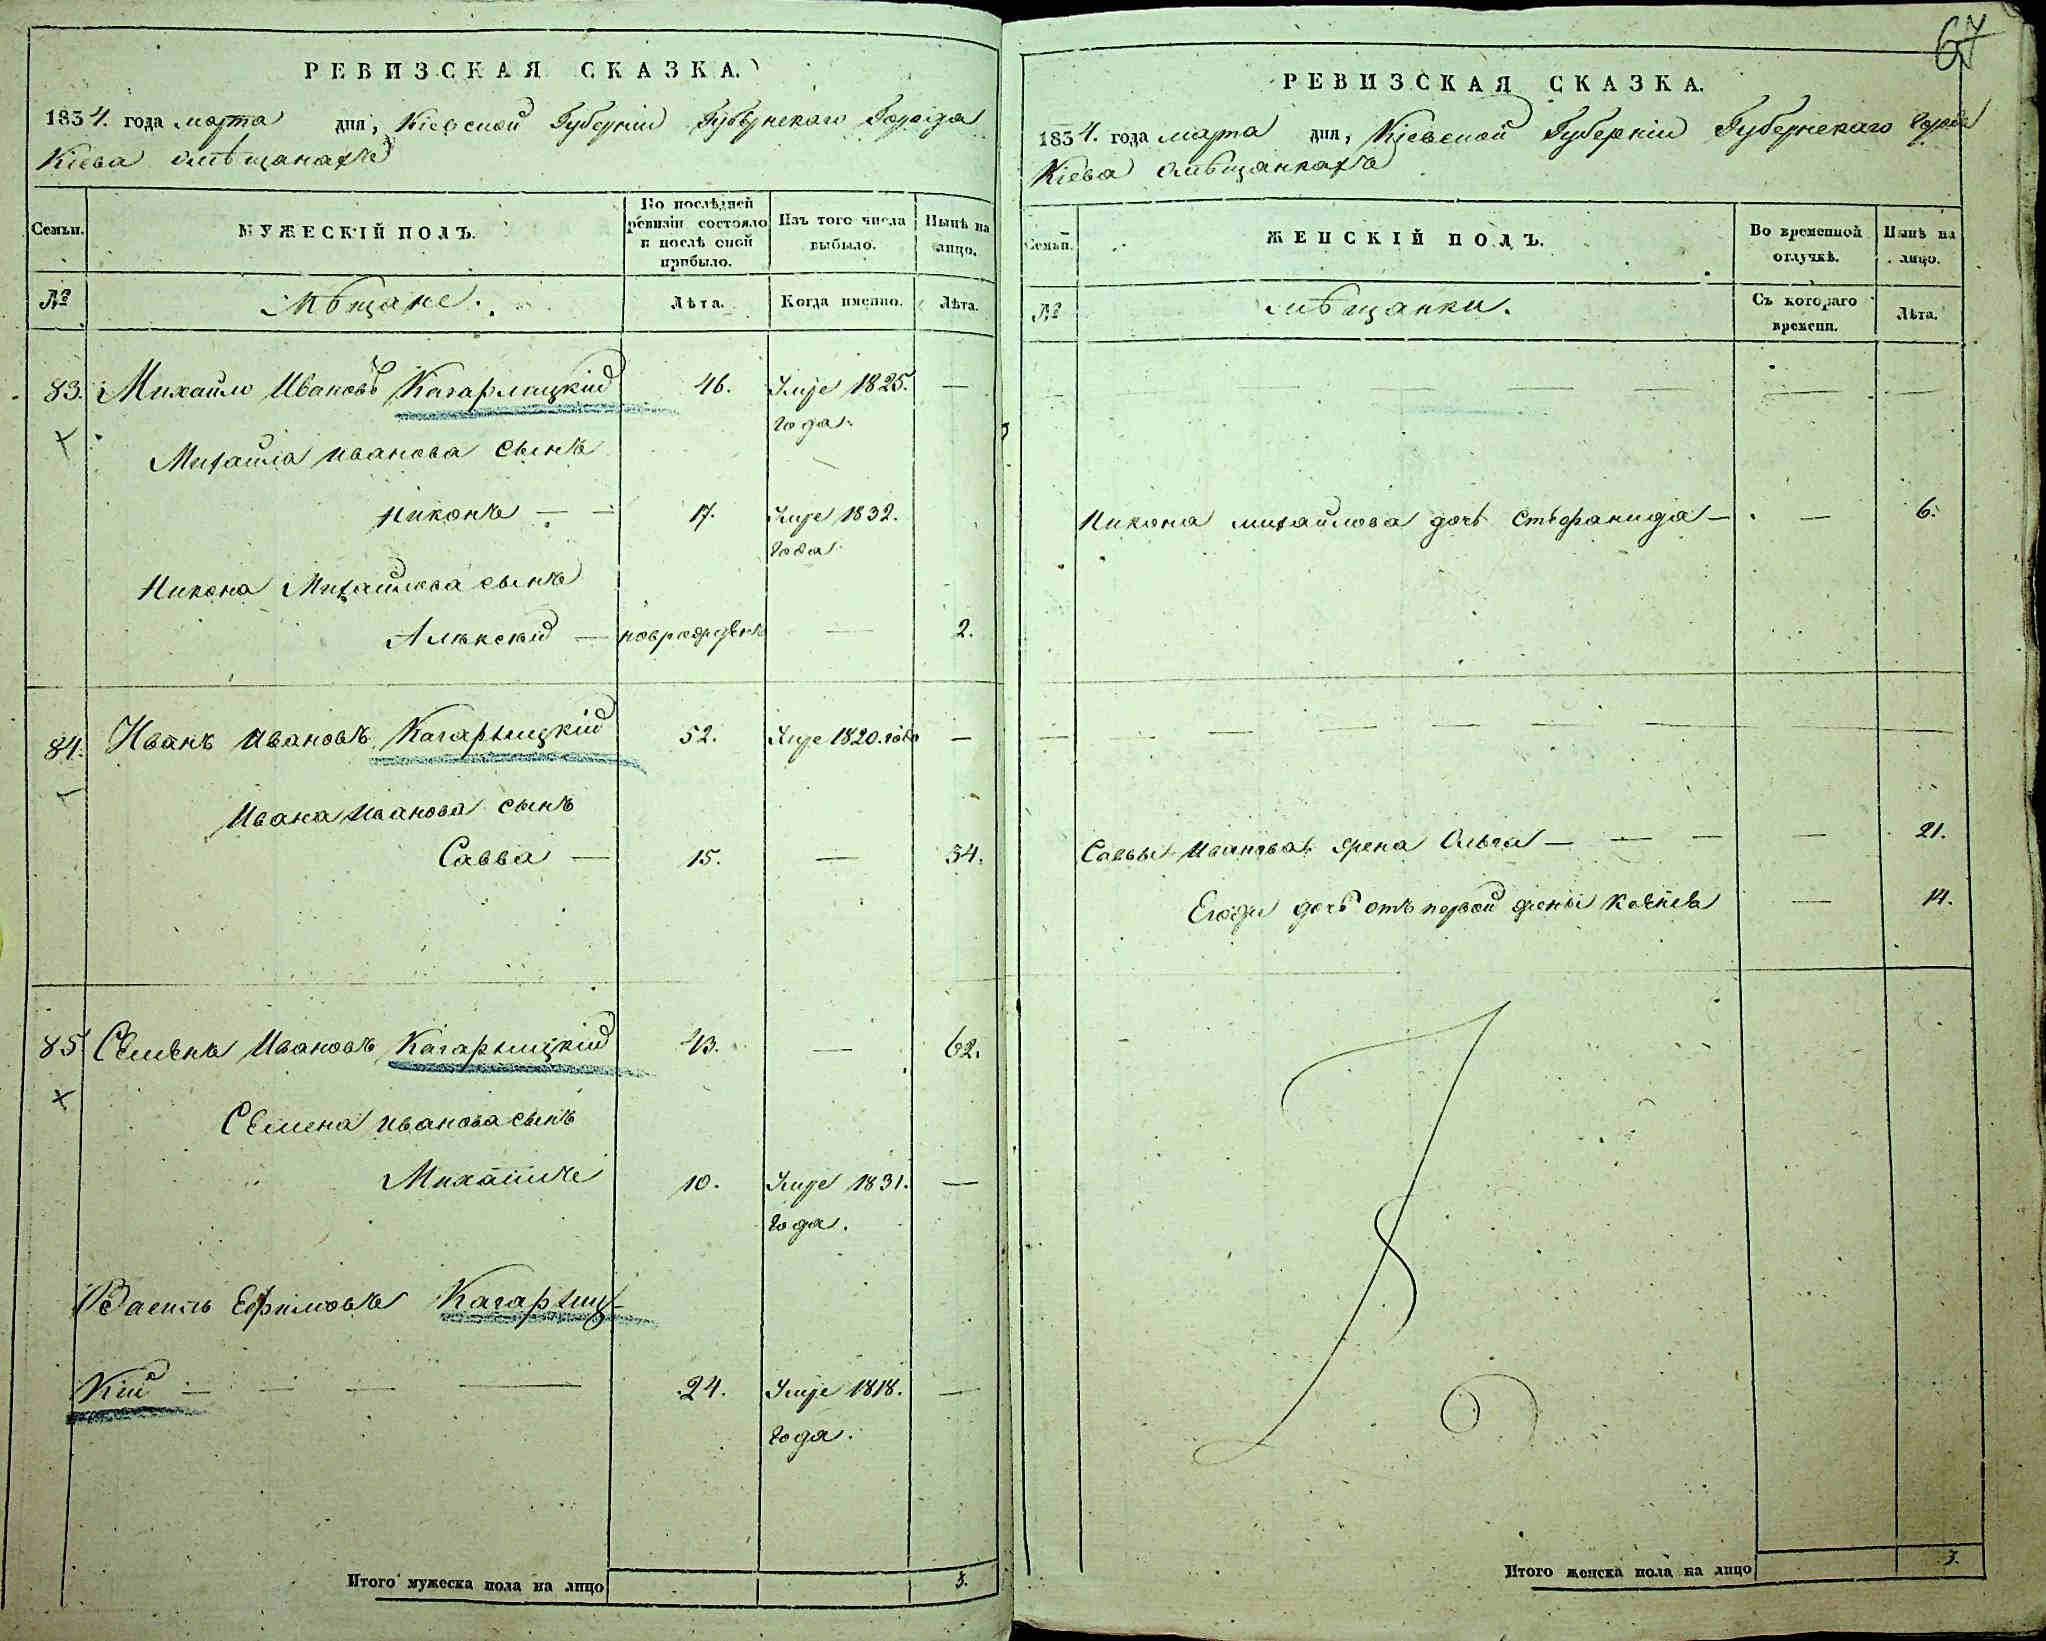 67
РЕВИЗСКАЯ СКАЗКА.
1834. года марта дня, Кіевской Губерніи Губернскаго Города
Кіева мѣщанахъ
Семьи.
МУЖЕСКІЙ ПОЛЪ.
По послѣдней ревизіи состояло и послѣ оной прибыло.
Изъ того числа выбыло.
Нынѣ на лицо.
№
Мѣщане.
Лѣта.
Когда именно.
Лѣта.
83. Михайло Ивановъ Кагарлицкій 46. Умре 1825. —
года.
Михайла Иванова сынъ
Никонъ — — 17. Умре 1832.
года.
Никона Михайлова сынъ
Алексѣй — новрожденъ — 2.
84. Иванъ Ивановъ Кагарлицкій 52. Умре 1820. года —
Ивана Иванова сынъ
Савва — 15. — 34.
85 Семенъ Ивановъ Кагарлицкій 43. — 62.
Семена Иванова сынъ
Михайло 10. Умре 1831. —
года.
Василь Ефимовъ Кагарлиц-
кій — — — — 24. Умре 1818. —
года.
Итого мужеска пола на лицо 3.
РЕВИЗСКАЯ СКАЗКА.
1834. года марта дня, Кіевской Губерніи Губернскаго города
Кіева мѣщанкахъ
Семьи.
ЖЕНСКІЙ ПОЛЪ.
Во временной отлучкѣ.
Нынѣ на лицо.
№
мѣщанки.
Съ котораго времени.
Лѣта.
Никона Михайлова дочь Стефанида — — 6.
Саввы Иванова жена Ольга — — — — 21.
Егожъ дочь отъ первой жены — 14.
Итого женска пола на лицо 3.